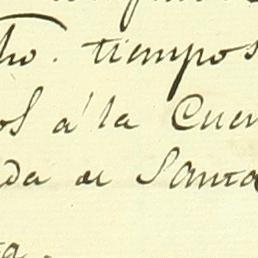 tiempos
os a' la Cuen
da de Santa